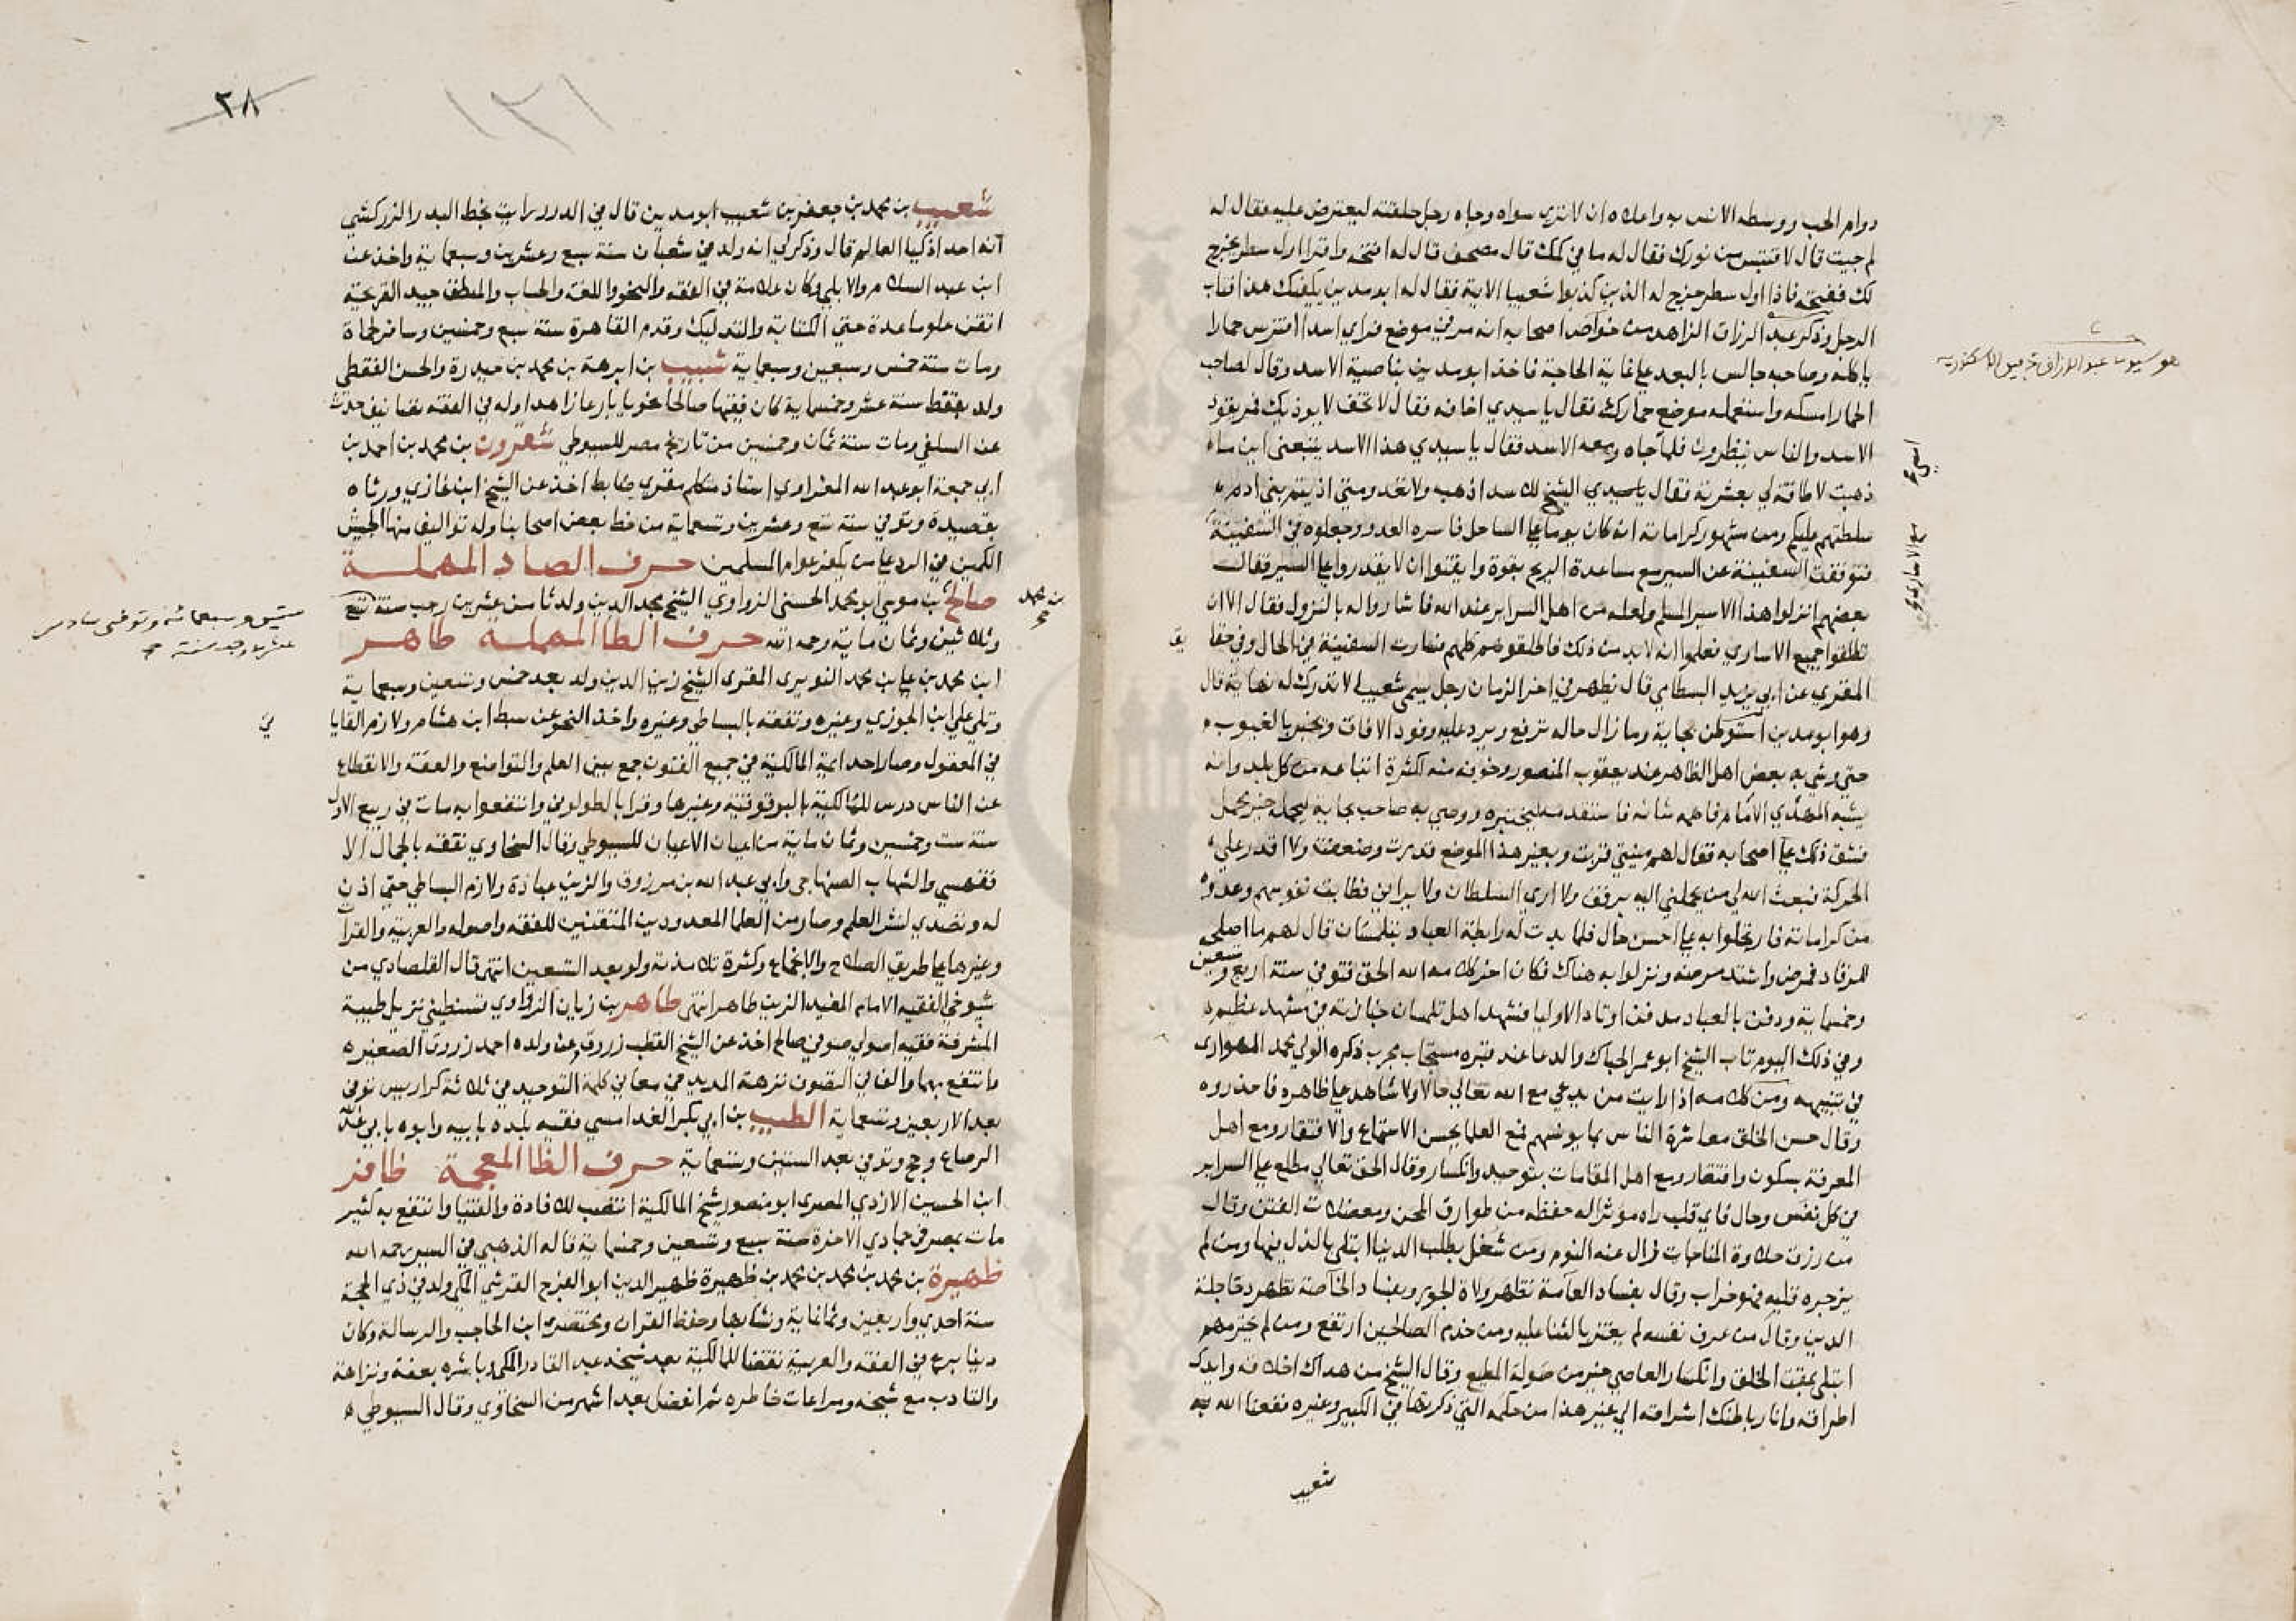 دوام الحب ووسطه الانس به واعلاه ان لا تري سواه وجاه رجل حلقته ليعترض عليه فقال له
لم جيت قال لاقتبس من نورك فقال له ما في كمك قال مصحف قال له افتحه واقرا اول سطر يخرج
لك ففتحه فاذا اول سطر خرج له الذين كذبوا شعيبا الاية فقال له ابو مدين يكفيك هذا فتاب
الرجل وذكر عبد الرزاق الزاهد من خواص اصحابه انه مر في موضع فراي اسدا افترس حمارا
ياكله وصاحبه جالس بالبعد علي غاية الحاجة فاخذ ابو مدين بناصية الاسد وقال لصاحب
الحمار امسكه واستعمله موضع حمارك فقال يا سيدي اخافه فقال لا تخف لا يوذيك فمر يقود
الاسد والناس ينظرون فلما جاه ومعه الاسد فقال يا سيدي هذا الاسد يتبعني اين ما
ذهبت لا طاقة لي بعشرته فقال يا سيدي الشيخ للاسد اذهب ولا تعد ومتي اذيتم بني ادم
سلطتهم عليكم ومن مشهور كراماته انه كان يوما علي الساحل فاسره العدو وجعلوه في السفينة
فتوقفت السفينة عن السير مع مساعدة الريح بقوة وايقنوا ان لا يقدروا علي السير فقال
بعضهم انزلوا هذا الاسير المسلم ولعله من اهل السراير عند الله فاشاروا له بالنزول فقال الا ان
تطلقوا جميع الاساري فعلموا ان لا بد من ذلك فاطلقوهم كلهم فسارت السفينة في الحال وفي حقا
المقري عن ابي يزيد البسطامي قال يظهر في اخر الزمان رجل يسمي شعيبا لا تدرك له نهاية قال
وهو ابو مدين استوطن بجاية وما زال حاله ترفع ويرد عليه وفود الافاق ويخبر بالغيوب
حتي وشي به بعض اهل الظاهر عند يعقوب المنصور وخوفه منه لكثرة اتباعه من كل بلد وانه
يشبه المهدي الامام فاهمه شانه فاستقدمه ليختبره ووصي به صاحب بجاية ليحمله خير محمل
فشق ذلك علي اصحابه فقال لهم منيتي قربت وبغير هذا الموضع قدرت وضعفت ولا اقدر علي
الحركة فبعث الله لي من يحملني اليه برفق ولا اري السلطان ولا يراني فطابت نفوسهم وعدوه
من كراماته فارتحلوا به علي احسن حال فلما بدت له رابطة العباد بتلمسان قال لهم ما اصلحه
للرقاد فمرض واشتد مرضه ونزلوا به هناك فكان اخر كلامه الله الحق فتوفي سنة اربع وتسعين
وخمسماية ودفن بالعباد مدفن اوتاد الاوليا فشهد اهل تلمسان جنازته في مشهد عظيم
وفي ذلك اليوم تاب الشيخ ابو عمر الحباك والدعا عند قبره مستجاب مجرب ذكره الولي محمد الهواري
في تنبيهه ومن كلامه اذا رايت من يدعي مع الله تعالي حالا ولا شاهد علي ظاهره فاحذروه
وقال حسن الخلق معاشرة الناس بما يونسهم فمع العلما بحسن الاستماع والافتقار ومع اهل
المعرفة بسكون وافتقار ومع اهل المقامات بتوحيد وانكسار وقال الحق تعالي مطلع علي السراير
في كل نفس وحال فاي قلب راه موثرا له حفظه من طوارق المحن ومعضلات الفتن وقال
من رزق حلاوة المناجات زال عنه النوم ومن شغل بطلب الدنيا ابتلي بالذل فيها ومن لم
يزجره قلبه فهو خراب وقال بفساد العامة تظهر ولاة الجور وبفساد الخاصة تظهر دجاجلة
الدين وقال من عرف نفسه لم يغتر بالثنا عليه ومن خدم الصالحين ارتفع ومن لم
ابتلي بمقت الخلق وانكسار العاصي خير من صولة المطيع وقال الشيخ من هداك اخلاقه وايدك
اطراقه وانار باطنك اشراقه الي غير هذا من حكمه التي ذكرتها في الكبير وغيره نفعنا الله به
شعيب
٢٨
١٣١
شعيب بن محمد بن جعفر بن شعيب ابو مدين قال في الدرر رايت بخط البدر الزركشي
انه احد اذكيا العالم قال وذكر لي انه ولد في شعبان سنة سبع وعشرين وسبعماية واخذ عن
ابن عبد السلام والابلي وكان علامة في الفقه والنحو واللغة والحساب والمنطق جيد القريحة
اتقن علوما عدة حتي الكتابة والتدليك وقدم القاهرة سنة سبع وخمسين وسافر لحماة
ومات سنة خمس وسبعين وسبعماية شبيب بن ابرهة بن محمد بن حيدرة والحسن القفطي
ولد بقفط سنة عشر وخمسماية كان فقيها صالحا نحويا بارعا زاهدا وله في الفقه تصانيف حدث
عن السلفي ومات سنة ثمان وخمسين من تاريخ مصر للسيوطي شقرون بن محمد بن احمد بن
ابي جمعة ابو عبد الله المغراوي استاذ متكلم مقري ضابط اخذ عن الشيخ ابن غازي ورثاه
بقصيدة وتوفي سنة تسع وعشرين وتسعماية من خط بعض اصحابنا وله تواليف منها الجيش
الكمين في الرد علي من يكفر عوام المسلمين حرف الصاد المهملة
صالح بن موسي ابو محمد الحسني الزواوي الشيخ مجد الدين ولد ثامن عشرين رجب سنة تسع
وثلاثين وثمان ماية رحمه الله حرف الطا المهملة طاهر
ابن محمد بن علي بن محمد النويري المقري الشيخ زين الدين ولد بعد خمس وتسعين وسبعماية
وتلي علي ابن الجوزي وغيره وتفقه بالبساطي وغيره واخذ النحو عن سبط ابن هشام ولازم القايا
في المعقول وصار احد ايمة المالكية في جميع الفنون جمع بين العلم والتواضع والعفة والانقطاع
عن الناس درس للمالكية بالبرقوقية وغيرها وقرا بالطولوني وانتفعوا به مات في ربيع الاول
سنة ست وخمسين وثمان ماية من اعيان الاعيان للسيوطي وقال السخاوي تفقه بالجمال الا
قفهسي والشهاب الصنهاجي وابي عبد الله بن مرزوق والزين عبادة ولازم البساطي حتي اذن
له وتصدي لنشر العلم وصار من العلما المعدودين المتفننين للفقه واصوله والعربية والقران
وغيرها علي طريق الصلاح والانجماع وكثرة تلامذته ولد بعد التسعين انتهي قال القلصادي من
شيوخي الفقيه الامام المفيد الزين طاهر انتهي طاهر بن زيان الزواوي قسنطيني نزيل طيبة
المشرفة فقيه اصولي صوفي صالح اخذ عن الشيخ القطب زروق وعن ولده احمد زروق الصغير
وانتفع بهما والف في التصوف نزهة المريد في معاني كلمة التوحيد في ثلاثة كراريس توفي
بعد الاربعين وتسعماية الطيب بن ابي بكر الغدامسي فقيه بلده بابيه وابوه بابي عبد الله
الرصاع وحج وتوفي بعد الستين وتسعماية حرف الظا المعجمة ظافر
ابن الحسين الازدي المصري ابو منصور شيخ المالكية انتصب للافادة والفتيا وانتفع به كثير
مات بمصر في جمادي الاخرة سنة سبع وتسعين وخمسماية قاله الذهبي في السير رحمه الله
ظهيرة بن محمد بن محمد بن محمد بن ظهيرة ظهير الدين ابو الفرج القرشي المكي ولد في ذي الحجة
سنة احدي واربعين وثمانماية ونشا بها وحفظ القران ومختصري ابن الحاجب والرسالة وكان
دينا برع في الفقه والعربية للمالكية بعد شيخه عبد القادر المكي وباشره بعفة ونزاهة
والتادب مع شيخه ومراعات خاطره ثم انفصل بعد اشهر من السخاوي وقال السيوطي
بن محمد
صح